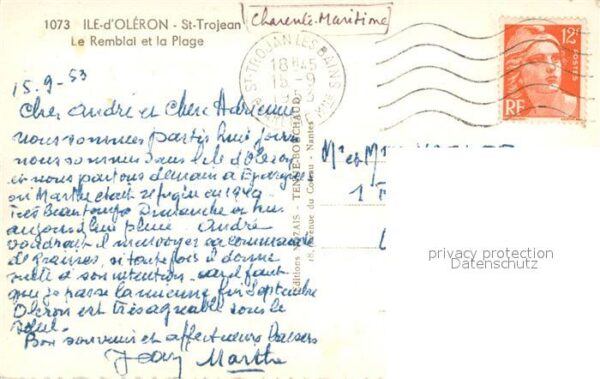 1073 ILE-d'OLÉRON - St-Trojean
Charente-Maritime
Le Remblai et la Plage
ST-TROJAN LES BAINS
18H45
15-9
12F
POSTES
RF
15.9-53
Cher André et Chère Adrienne
nous sommes partis huit jours
nous sommes dans l'ile d'Oléron
et nous partons demain à
où Marthe était réfugiée en 1940
très Beau temps Dimanche et hier
aujourd'hui pluie. André
voudrait il m'envoyer
de graines, si toutefois il donne
suite à son intention. car il faut
que je passe la mienne fin Septembre
Oléron est très agréable sous le
Soleil.
Bon souvenir et affectueux Baisers
Jean Marthe
Editions NOZAIS - TENTE-BOUCHAUD
18, Avenue du Coteau - Nantes
Mr et M
1
privacy protection
Datenschutz